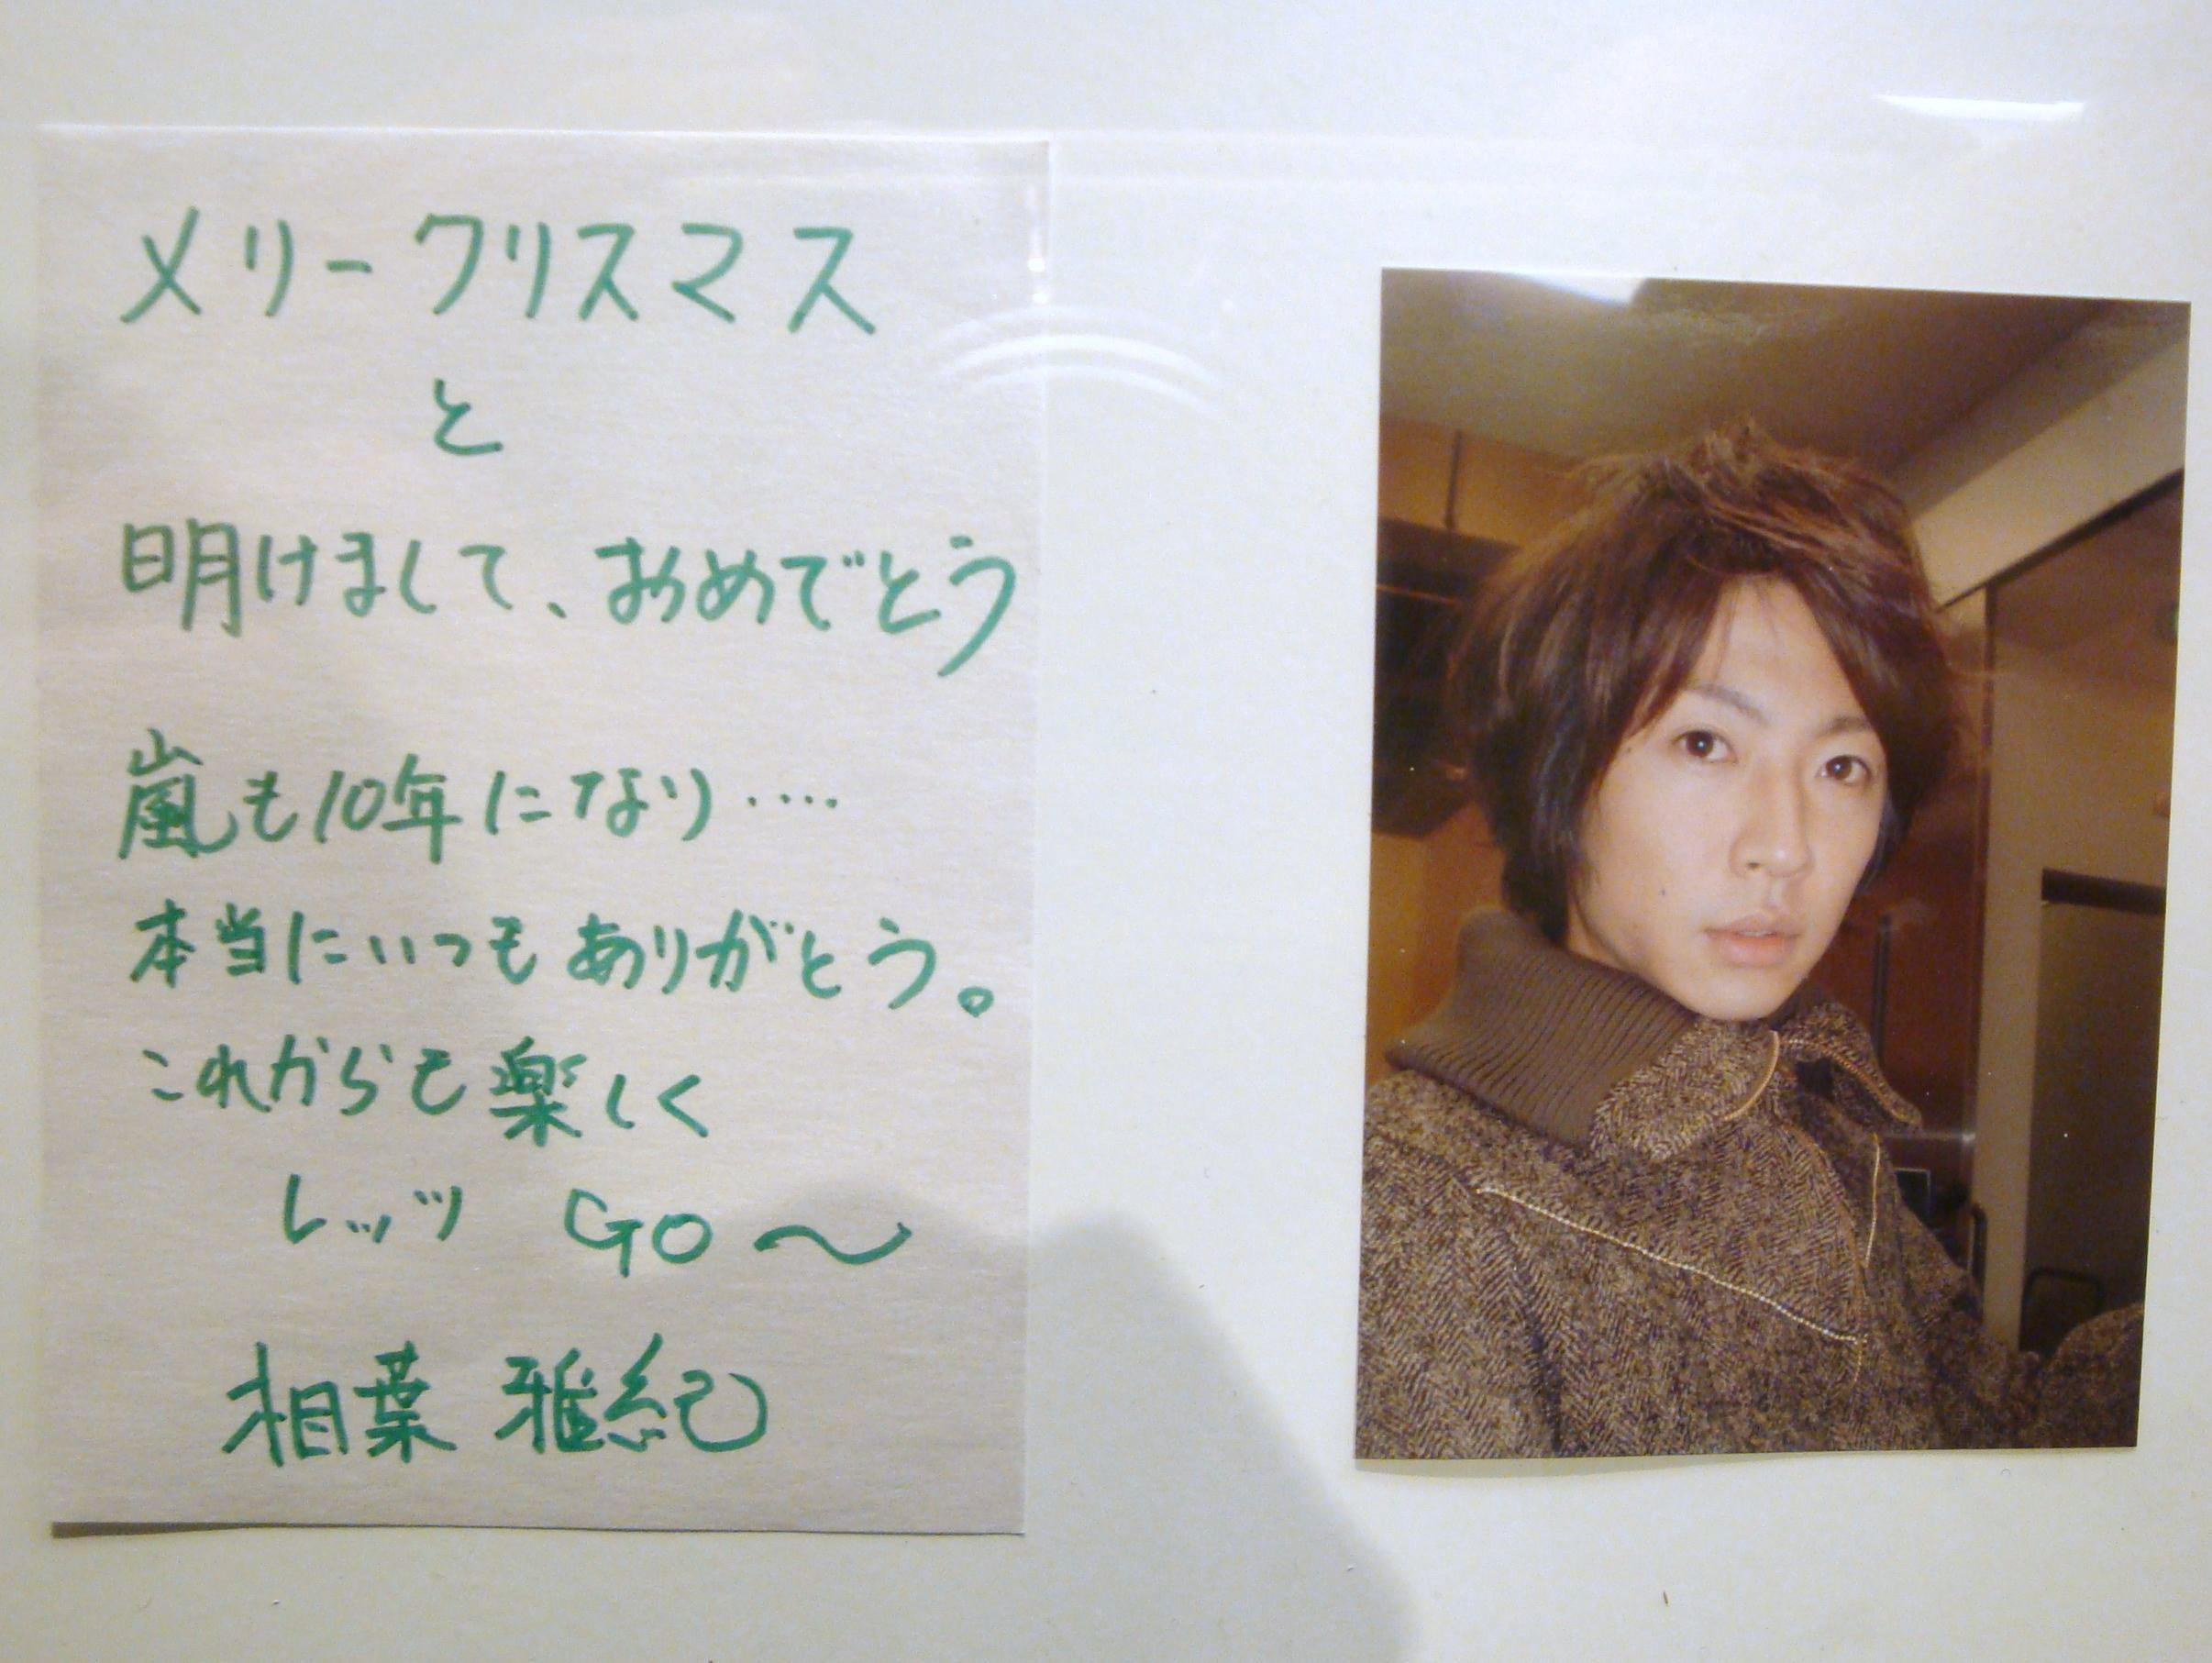 メリークリスマス
と
明けまして、おめでとう
嵐も10年になり‥‥
本当にいつもありがとう。
これからも楽しく
レッツ GO〜
相葉 雅紀